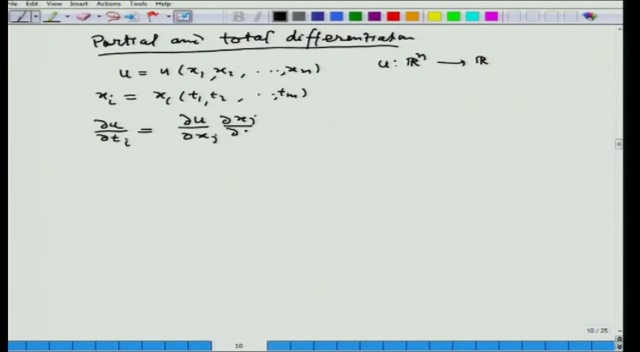 File Edit View Insert Actions Tools Help
Partial and total differentiation
u = u (x₁, x₂, ..., xₙ)    u: ℝⁿ → ℝ
xᵢ = xᵢ (t₁, t₂, ..., tₘ)
∂u/∂tᵢ = ∂u/∂xⱼ ∂xⱼ/∂
10 / 25
10